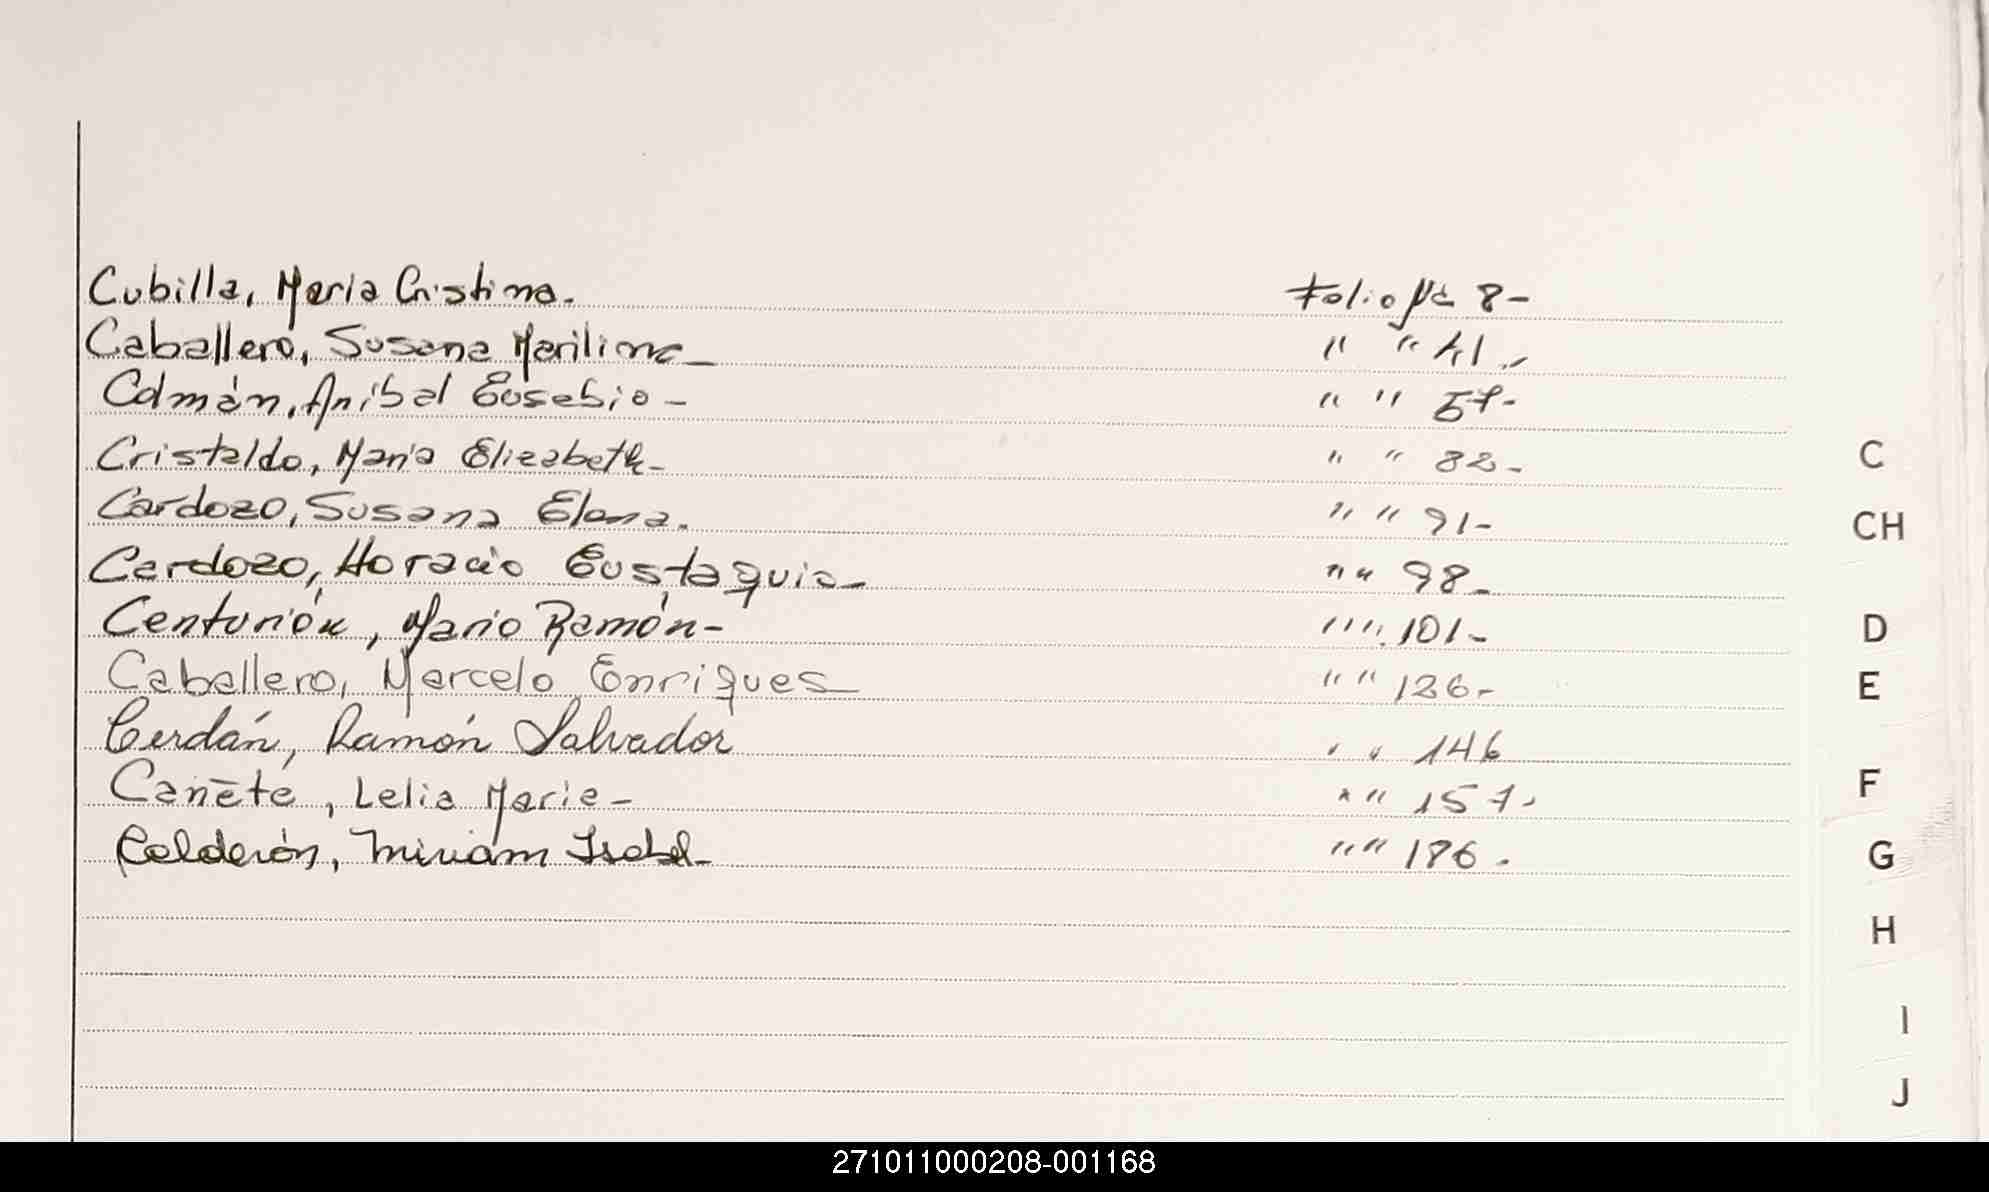 Cubilla, María Cristina. Folio Nº 8-
Caballero, Susana Marilina- " " 41.-
Colmán, Aníbal Eusebio- " " 57-
Cristaldo, María Elizabeth- " " 82-
Cardozo, Susana Elena. " " 91-
Cardozo, Horacio Eustaquio- " " 98-
Centurión, Mario Ramón- " " 101-
Caballero, Marcelo Enriques- " " 126-
Cerdán, Ramón Salvador " " 146
Cañete, Lelia María- " " 157-
Calderón, Miriam Isabel- " " 186.
C
CH
D
E
F
G
H
I
J
271011000208-001168